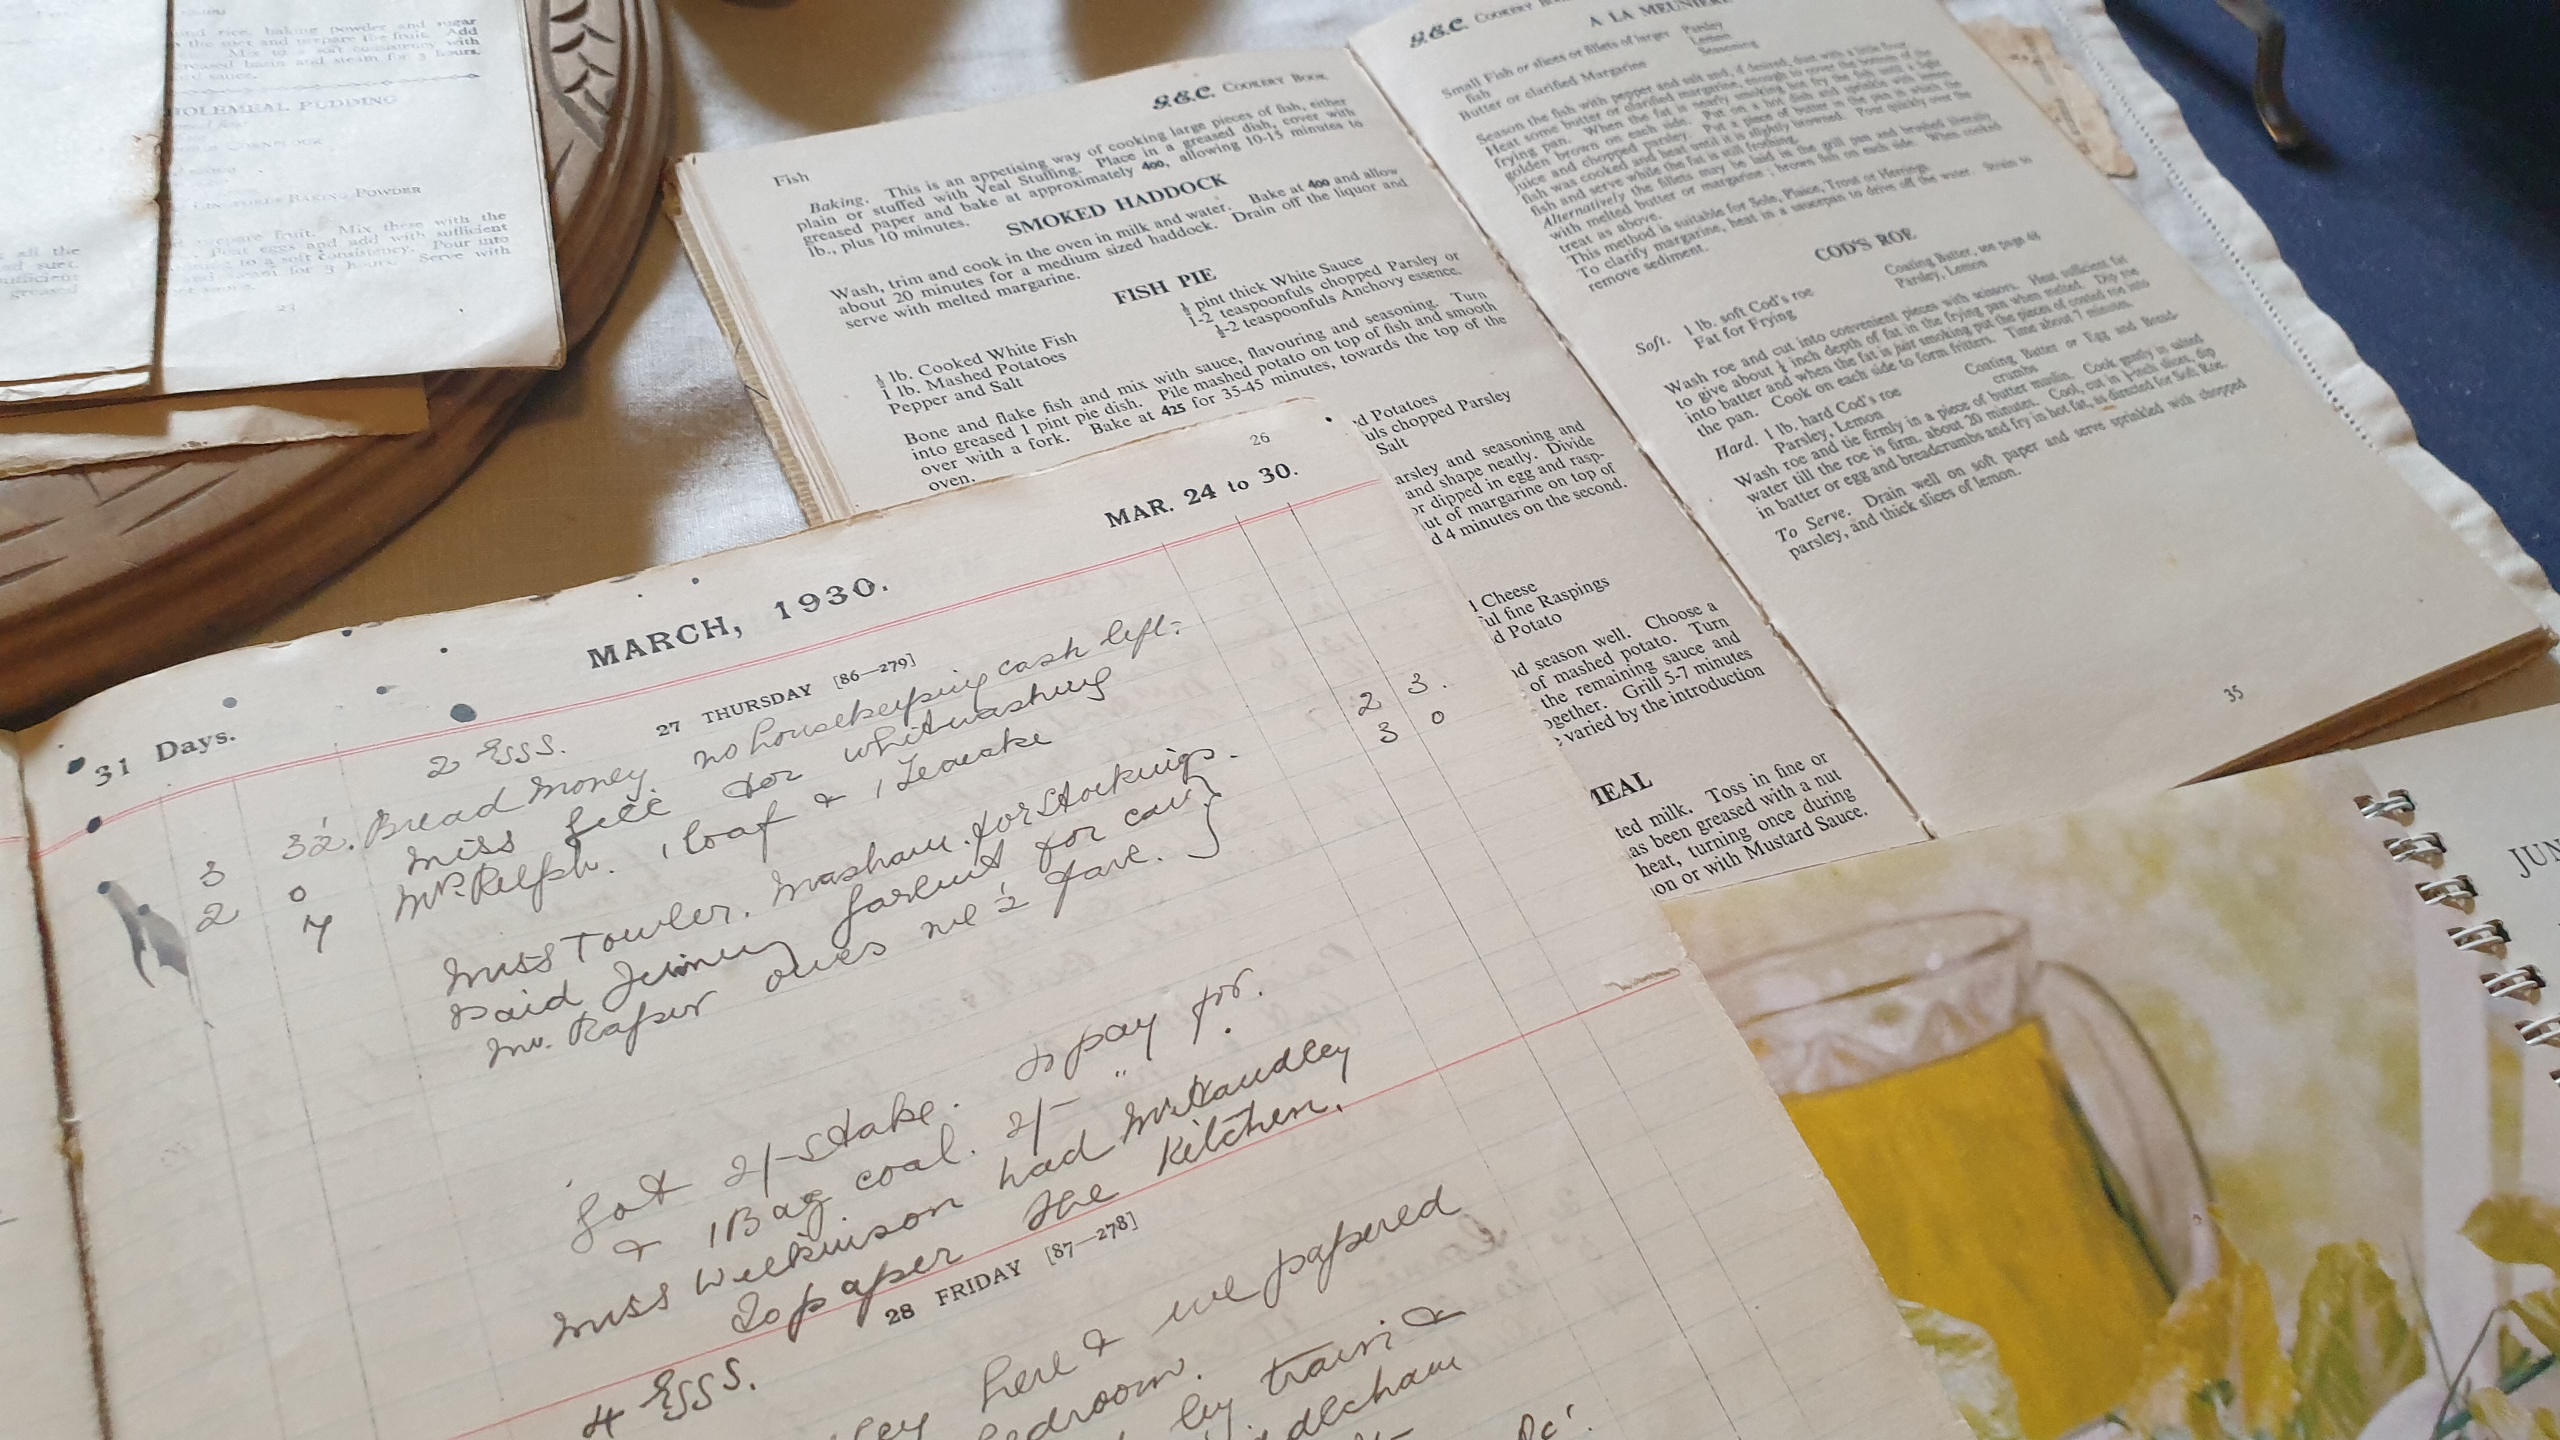 ond rice, baking powder and sugar
the suet and prepare the fruit. Add
Mix to a soft consistency with
greased basin and steam for 3 hours.
sauce.
OLEMEAL PUDDING
BAKING POWDER
prepare fruit. Mix these with the
eggs and add with sufficient
to a soft consistency. Pour into
for 3 hours. Serve with
all the
suet.
sufficient
greased
27
G.E.C. COOKERY BOOK
Fish
Baking. This is an appetising way of cooking large pieces of fish, either
plain or stuffed with Veal Stuffing. Place in a greased dish, cover with
greased paper and bake at approximately 400, allowing 10-15 minutes to
lb., plus 10 minutes.
SMOKED HADDOCK
Wash, trim and cook in the oven in milk and water. Bake at 400 and allow
about 20 minutes for a medium sized haddock. Drain off the liquor and
serve with melted margarine.
FISH PIE
½ lb. Cooked White Fish
1 lb. Mashed Potatoes
Pepper and Salt
½ pint thick White Sauce
1-2 teaspoonfuls chopped Parsley or
½-2 teaspoonfuls Anchovy essence.
Bone and flake fish and mix with sauce, flavouring and seasoning. Turn
into greased 1 pint pie dish. Pile mashed potato on top of fish and smooth
over with a fork. Bake at 425 for 35-45 minutes, towards the top of the
oven.
d Potatoes
uls chopped Parsley
Salt
arsley and seasoning and
and shape neatly. Divide
or dipped in egg and rasp-
ut of margarine on top of
d 4 minutes on the second.
Cheese
ful fine Raspings
d Potato
nd season well. Choose a
of mashed potato. Turn
the remaining sauce and
ogether. Grill 5-7 minutes
varied by the introduction
MEAL
ted milk. Toss in fine or
as been greased with a nut
heat, turning once during
on or with Mustard Sauce.
G.E.C. COOKERY BOOK
A LA MEUNIERE
Small Fish or slices or fillets of larger
fish
Butter or clarified Margarine
Parsley
Lemon
Seasoning
Season the fish with pepper and salt and, if desired, dust with a little flour.
Heat some butter or clarified margarine, enough to cover the bottom of the
frying pan. When the fat is nearly smoking hot fry the fish until a light
golden brown on each side. Put on a hot dish and sprinkle with lemon
juice and chopped parsley. Put a piece of butter in the pan in which the
fish was cooked and heat until it is slightly browned. Pour quickly over the
fish and serve while the fat is still frothing.
Alternatively the fillets may be laid in the grill pan and brushed liberally
with melted butter or margarine; brown fish on each side. When cooked
treat as above.
This method is suitable for Sole, Plaice, Trout or Herrings.
To clarify margarine, heat in a saucepan to drive off the water. Strain to
remove sediment.
COD'S ROE
Soft. 1 lb. soft Cod's roe
Fat for Frying
Coating Batter, see page 48
Parsley, Lemon
Wash roe and cut into convenient pieces with scissors. Heat sufficient fat
to give about ¼ inch depth of fat in the frying pan when melted. Dip roe
into batter and when the fat is just smoking put the pieces of coated roe into
the pan. Cook on each side to form fritters. Time about 7 minutes.
Hard. 1 lb. hard Cod's roe
Parsley, Lemon
Coating Batter or Egg and Bread-
crumbs
Wash roe and tie firmly in a piece of butter muslin. Cook gently in salted
water till the roe is firm, about 20 minutes. Cool, cut in ½-inch slices, dip
in batter or egg and breadcrumbs and fry in hot fat, as directed for Soft Roe.
To Serve. Drain well on soft paper and serve sprinkled with chopped
parsley, and thick slices of lemon.
35
26
31 Days.
MARCH, 1930.
MAR. 24 to 30.
27 THURSDAY [86—279]
2 Eggs.
3 3½. Bread money no housekeeping cash left.
3 0 Miss Gill for whitewashing 2 3.
2 7 Mr. Relph. 1 loaf & 1 Teacake 3 0
Miss Towler. Masham. for Stockings.
Paid Jenny for
Mr. Raper owes me ½ fare.
Got 2/- Stake. to pay for.
& 1 Bag coal. 2/- "
Miss Wilkinson had Mr. Handley
To paper the Kitchen.
28 FRIDAY [87—278]
4 Eggs.
ley here & we papered
bedroom.
by train &
JUN